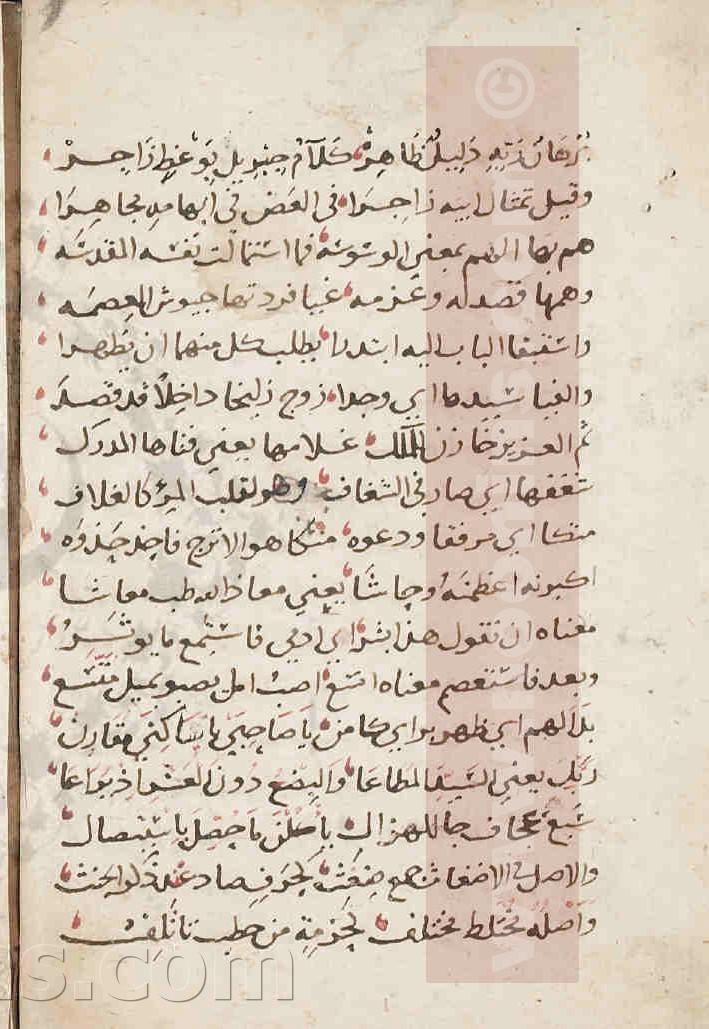 برهان ربه دليل ظاهر كلام جبريل بوعظ زاجر
وقيل تمثال ابيه زاجرا في العض في ابهامه مجاهرا
هم بها الهم بمعنى الوسوسه فما استمالت نفسه المقدسه
وهمها قصد له وعزمه غيبا فردتها جيوش العصمه
واستبقا الباب اليه ابتدرا يطلب كل منهما ان يظهرا
والفيا سيدها اي وجدا زوج زليخا داخلا قد قصدا
ثم العزيز خازن الملك غلامها يعني فتاها المدرك
شغفها اي صار في الشغاف وهو لقلب المرء كالغلاف
متكا اي مرفقا ودعوه متكا هو الاترج فاحذ حذوه
اكبرنه اعظمنه وحاشا يعني معاذ الله طب معاشا
معناه ان تقول هذا بشرا اي ادمي فاستمع ما يوثر
وبعد فاستعصم معناه امتنع اصب امل يصبو يميل متسع
بدا لهم اي ظهر براي كامن يا صاحبي يا ساكني مقارن
ربك يعني السيد المطاعا والبضع دون العشر
سبع عجاف حالها هزال
والاصل في الاضغاث جمع ضغث
واصله مختلط مختلف كحزمة من حطب تاتلف
www.
©
s.com